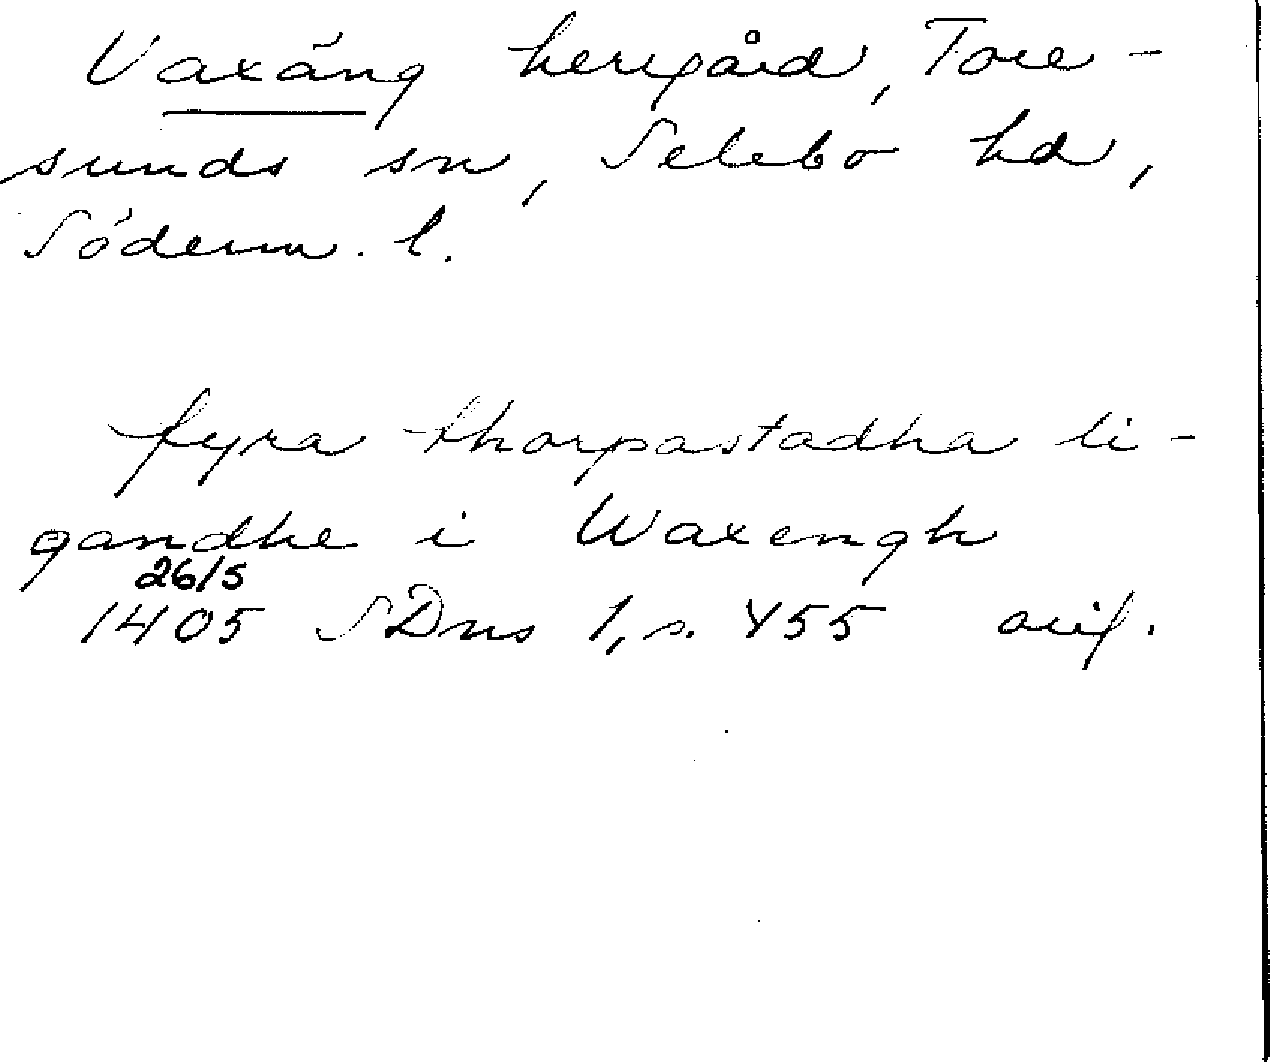 Vaxäng herrgård, Tore-
sunds sn, Selebo hd,
Söderm. l.
fyra thorpastadha li-
gandhe i Waxengh
26/5
1405 SDns 1, s. 455 orig.